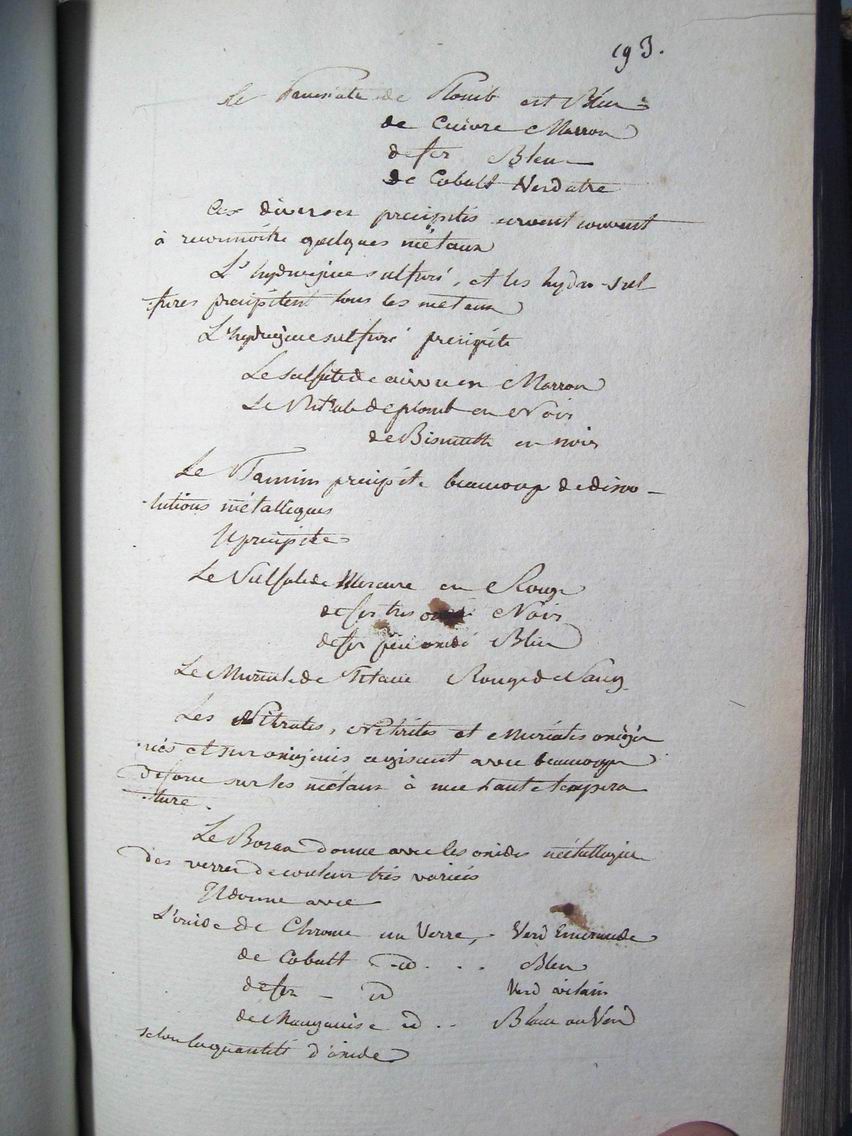 193.
Le Prussiate de Plomb est Bleu
de Cuivre Marron
de fer Bleu
de Cobalt Verdatre
Ces diverses precipités servent souvent
à reconnoitre quelques métaux
L'hydrogène sulfuré, et les hydro-sul
fures precipitent tous les métaux
L'hydrogène sulfuré precipite
Le sulfate de cuivre en Marron
Le Nitrate de plomb en Noir
de Bismuth en noir
Le Tannin precipite beaucoup de disso-
lutions métalliques
Il precipite
Le Sulfate de Mercure en Rouge
de fer très oxidé Noir
de fer peu oxidé Bleu
Le Muriate de Titane Rouge de Sang
Les Nitrates, Nitrites et Muriates oxigé
nés et suroxigénés agissent avec beaucoup
de force sur les métaux à une haute tempera
ture.
Le Borax donne avec les oxides métallique
des verres de couleur très variées
Il donne avec
L'oxide de Chrome un Verre, . Verd Emeraude
de Cobalt - id . . Bleu
de fer - id Verd
de Manganèse id . . Blanc ou
selon la quantité d'oxide